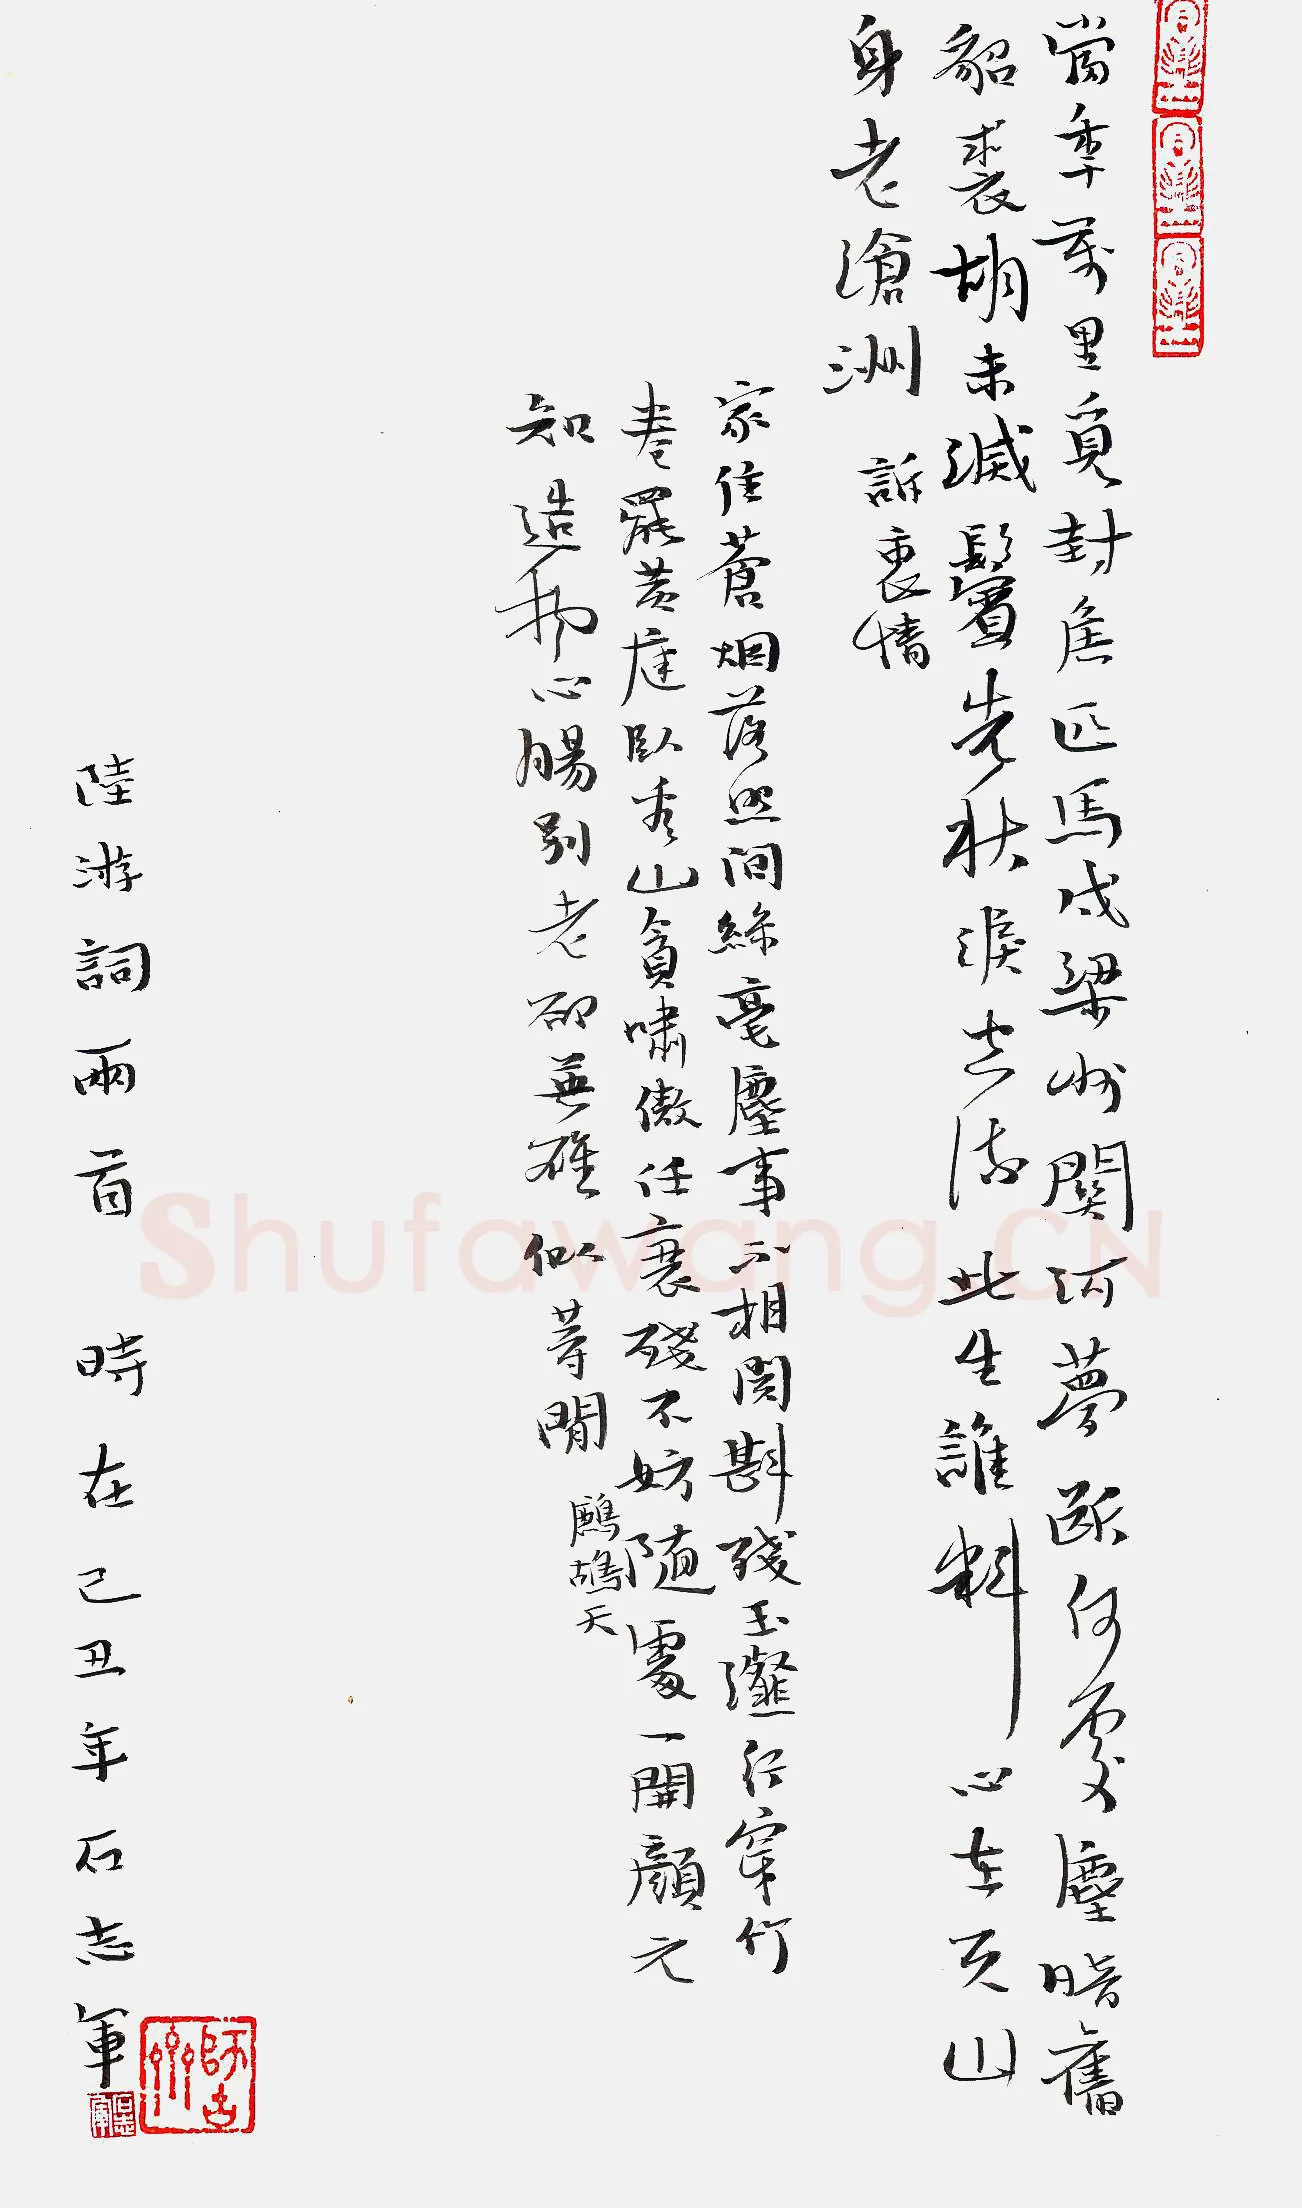 當年萬里覓封侯匹馬戍梁州關河夢斷何處塵暗舊
貂裘胡未滅鬢先秋淚空流此生誰料心在天山
身老滄洲 訴衷情
家住蒼烟落照間絲毫塵事不相関斟殘玉瀣行穿竹
卷罷黃庭臥看山貪嘯傲任衰殘不妨隨處一開顏元
知造物心腸別老卻無雄似等閒 鷓鴣天
陸游詞兩首 時在己丑年石志軍
Shufawang.CN